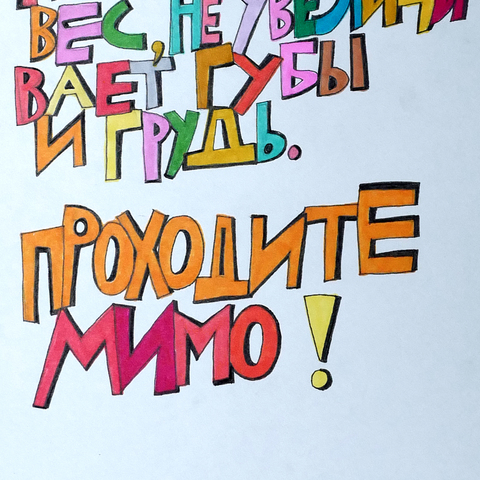 ВЕС, НЕ УВЕЛИЧИ
ВАЕТ ГУБЫ
И ГРУДЬ.
ПРОХОДИТЕ
МИМО!